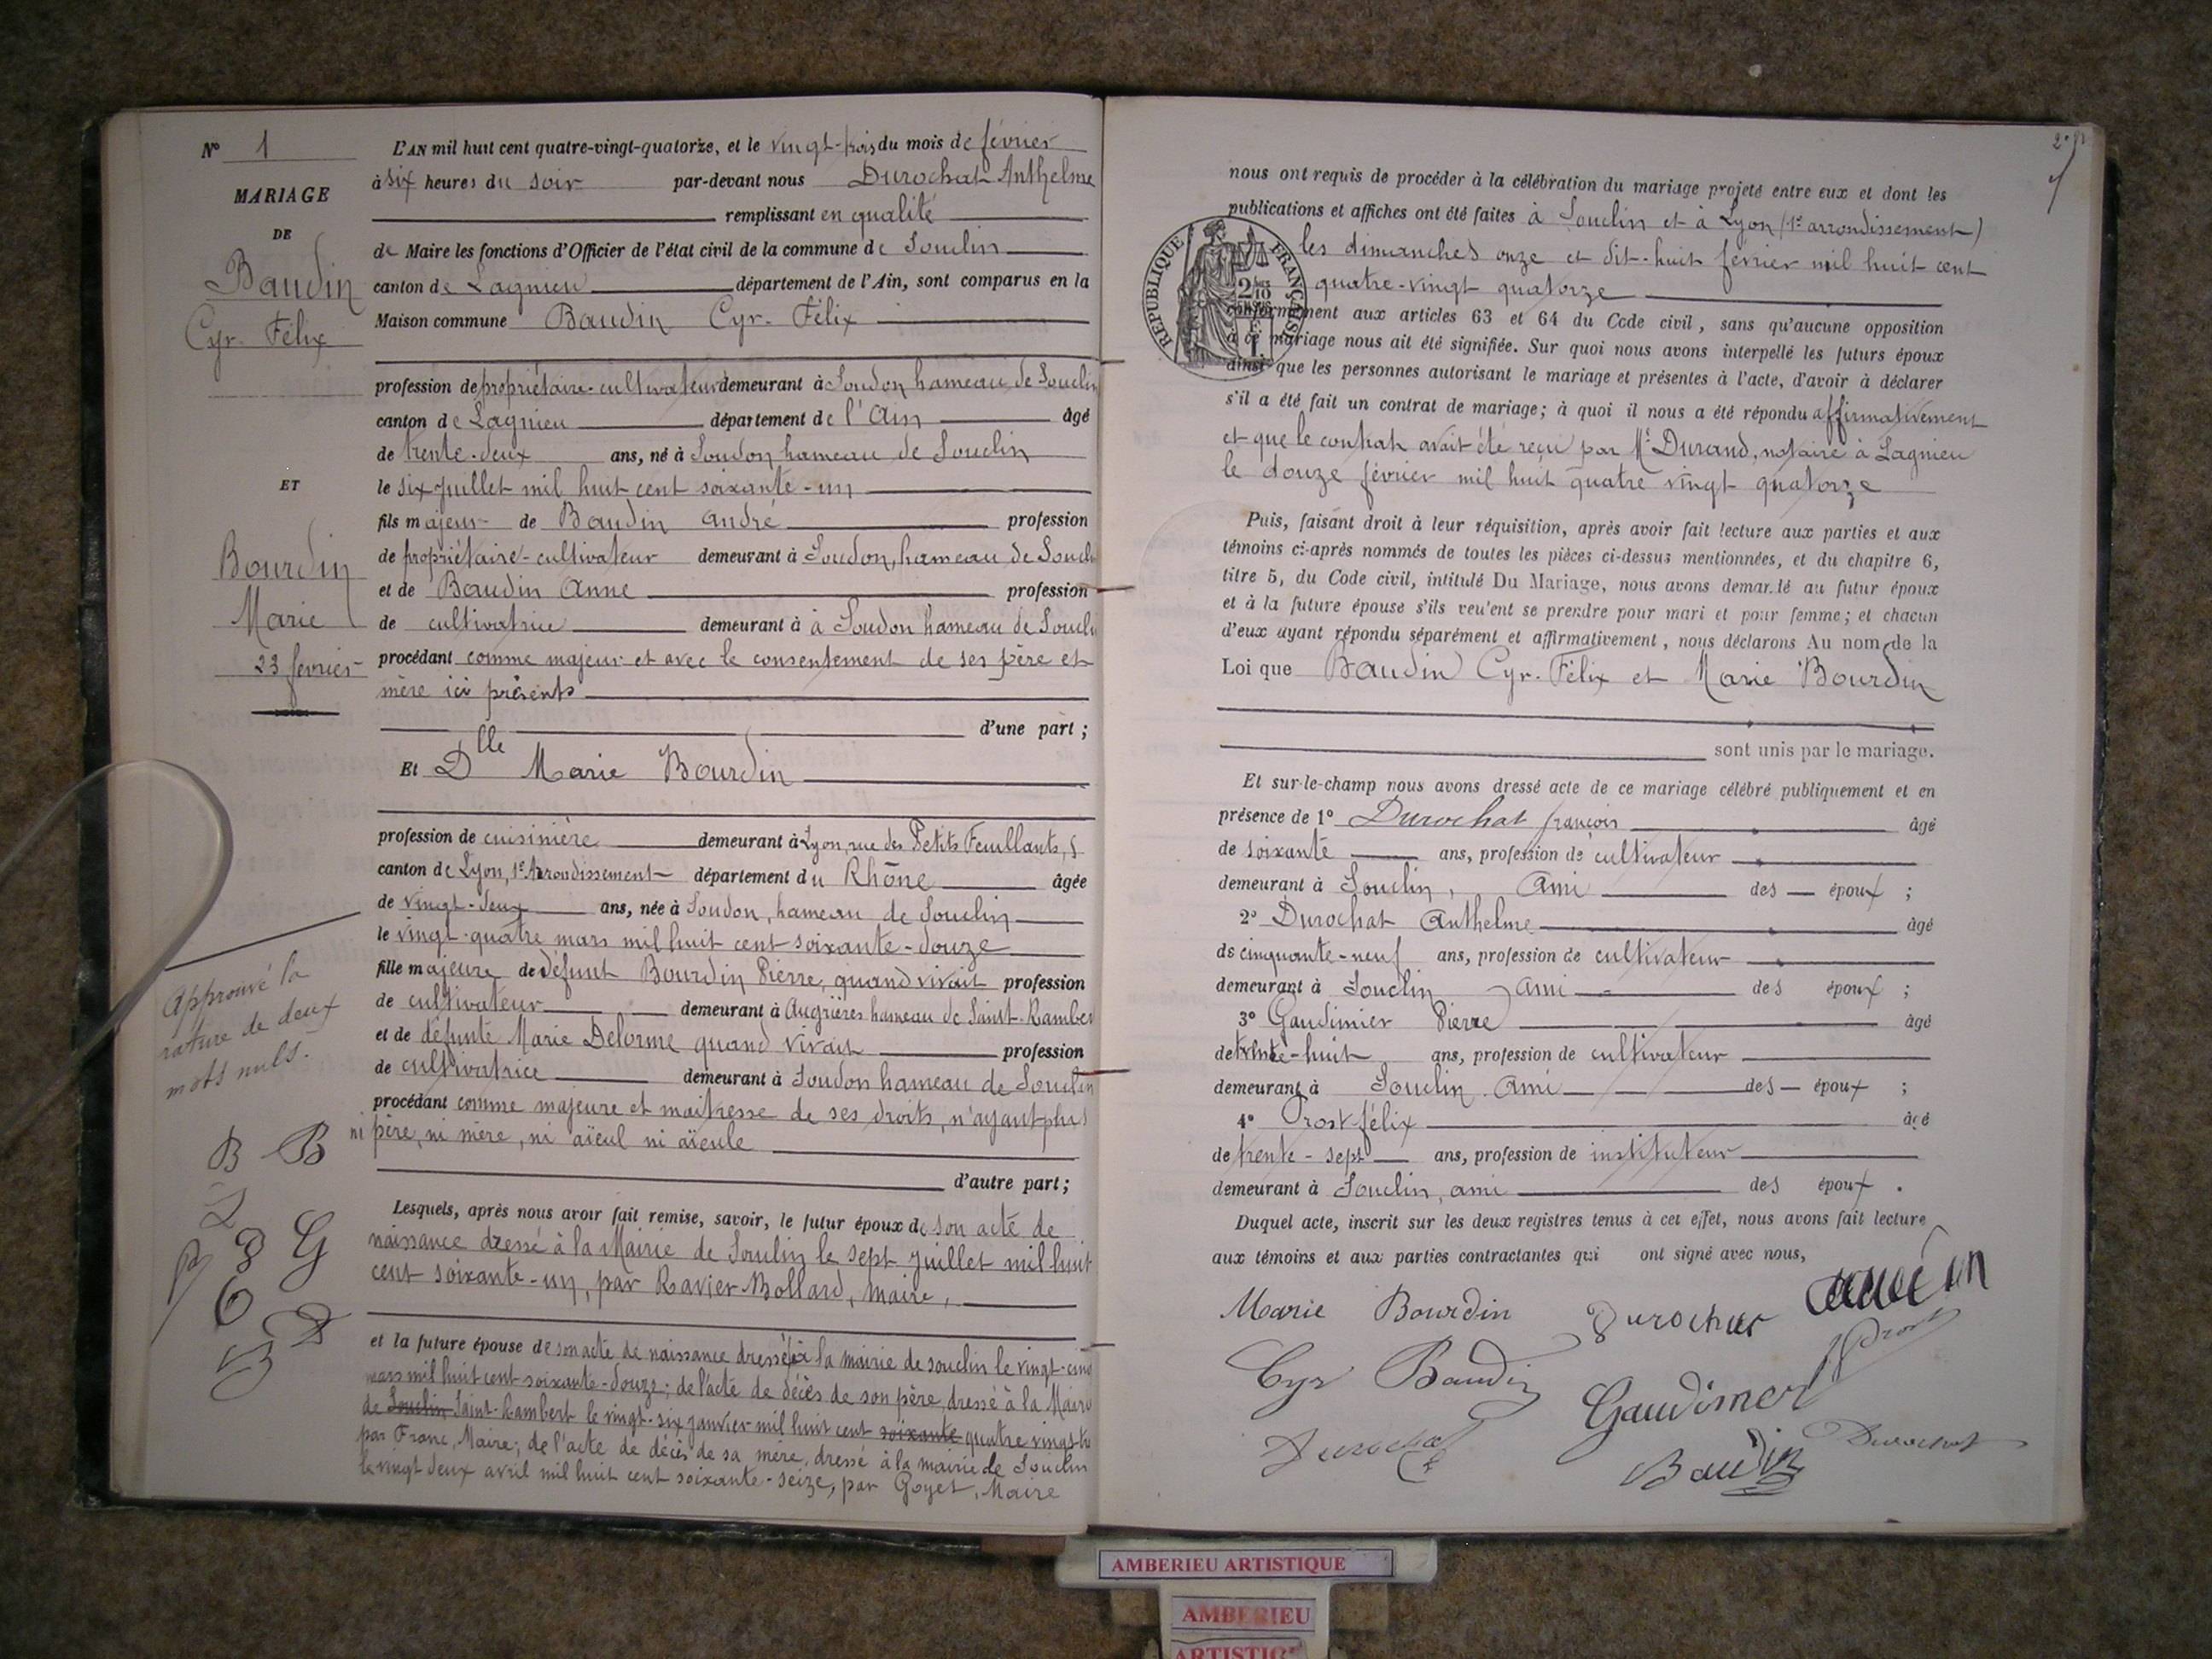 N° 1
MARIAGE
DE
Baudin
Cyr-Félix
ET
Bourdin
Marie
23 février
Approuvé la
rature de deux
mots nuls.
B B
G
L'AN mil huit cent quatre-vingt-quatorze, et le vingt-trois du mois de février
à six heures du soir par-devant nous Durochat Anthelme
remplissant en qualité
de Maire les fonctions d'Officier de l'état civil de la commune de Souclin
canton de Lagnieu département de l'Ain, sont comparus en la
Maison commune Baudin Cyr-Félix
profession de propriétaire-cultivateur demeurant à Soudon hameau de Souclin
canton de Lagnieu département de l'Ain âgé
de trente-deux ans, né à Soudon hameau de Souclin
le six juillet mil huit cent soixante-un
fils majeur de Baudin André profession
de propriétaire-cultivateur demeurant à Soudon, hameau de Soucli
et de Baudin Anne profession
de cultivatrice demeurant à à Soudon hameau de Soucli
procédant comme majeur et avec le consentement de ses père et
mère ici présents
d'une part ;
Et Dlle Marie Bourdin
profession de cuisinière demeurant à Lyon, rue des Petits Feuillants, 5
canton de Lyon, 1er Arrondissement département du Rhône âgée
de vingt-deux ans, née à Soudon, hameau de Souclin
le vingt-quatre mars mil huit cent soixante-douze
fille majeure de défunt Bourdin Pierre, quand vivait profession
de cultivateur demeurant à Augrières hameau de Saint-Rambert
et de défunte Marie Delorme quand vivait profession
de cultivatrice demeurant à Soudon hameau de Souclin
procédant comme majeure et maitresse de ses droits, n'ayant plus
ni père, ni mère, ni aïeul ni aïeule
d'autre part ;
Lesquels, après nous avoir fait remise, savoir, le futur époux de son acte de
naissance dressé à la Mairie de Souclin le sept juillet mil huit
cent soixante-un, par Ravier-Bollard, maire,
et la future épouse de son acte de naissance dressé à la mairie de souclin le vingt-cinq
mars mil huit cent soixante-douze; de l'acte de décès de son père, dressé à la Mairie
de Souclin Saint-Rambert le vingt-six janvier mil huit cent soixante quatre vingt
par Franc, Maire; de l'acte de décès de sa mère, dressé à la mairie de Souclin
le vingt deux avril mil huit cent soixante-seize, par Goyet, Maire
nous ont requis de procéder à la célébration du mariage projeté entre eux et dont les
publications et affiches ont été faites à Souclin et à Lyon (1er arrondissement)
les dimanches onze et dit-huit février mil huit cent
quatre-vingt quatorze
RÉPUBLIQUE FRANÇAISE
conformément aux articles 63 et 64 du Code civil, sans qu'aucune opposition
à ce mariage nous ait été signifiée. Sur quoi nous avons interpellé les futurs époux
ainsi que les personnes autorisant le mariage et présentes à l'acte, d'avoir à déclarer
s'il a été fait un contrat de mariage; à quoi il nous a été répondu affirmativement
et que le contrat avait été reçu par Me Durand, notaire à Lagnieu
le douze février mil huit quatre vingt quatorze
Puis, faisant droit à leur réquisition, après avoir fait lecture aux parties et aux
témoins ci-après nommés de toutes les pièces ci-dessus mentionnées, et du chapitre 6,
titre 5, du Code civil, intitulé Du Mariage, nous avons demandé au futur époux
et à la future épouse s'ils veulent se prendre pour mari et pour femme; et chacun
d'eux ayant répondu séparément et affirmativement, nous déclarons Au nom de la
Loi que Baudin Cyr-Félix et Marie Bourdin
sont unis par le mariage.
Et sur-le-champ nous avons dressé acte de ce mariage célébré publiquement et en
présence de 1° Durochat françois âgé
de soixante ans, profession de cultivateur
demeurant à Souclin, Ami des époux ;
2° Durochat Anthelme âgé
de cinquante-neuf ans, profession de cultivateur
demeurant à Souclin, Ami des époux ;
3° Gaudimier Pierre âgé
de trente-huit ans, profession de cultivateur
demeurant à Souclin Ami des époux ;
4° Prost félix âgé
de trente-sept ans, profession de instituteur
demeurant à Souclin, ami des époux .
Duquel acte, inscrit sur les deux registres tenus à cet effet, nous avons fait lecture
aux témoins et aux parties contractantes qui ont signé avec nous,
Marie Bourdin Durochat
Prost
Cyr Baudin
Gaudimer
Durochat Durochat
Baudin
AMBERIEU ARTISTIQUE
AMBERIEU
ARTISTIQ